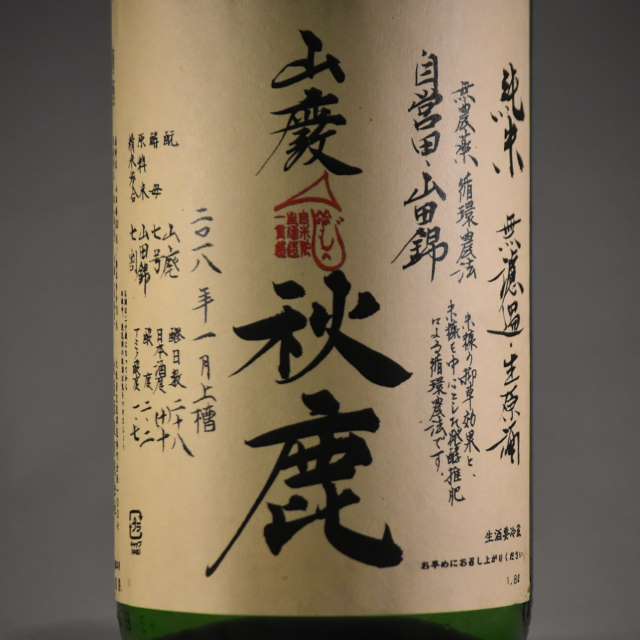 純米 無濾過・生原酒
無農薬 循環農法
自営田・山田錦
米糠の抑草効果と、
米糠を中心とした発酵堆肥
による循環農法です。
山廃
秋鹿
自米 
一貫造
二〇一八年一月上槽
酛 山廃
酵母 七号
原料米 山田錦
精米歩合 七割
醪日数 二十八
日本酒度 +十
酸度 二・二
アミノ酸度 一・七
生酒要冷蔵
お早めにお召し上がりください。
1.8ℓ